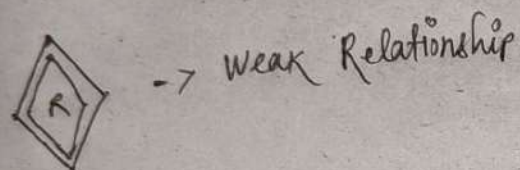 R -> Weak Relationship